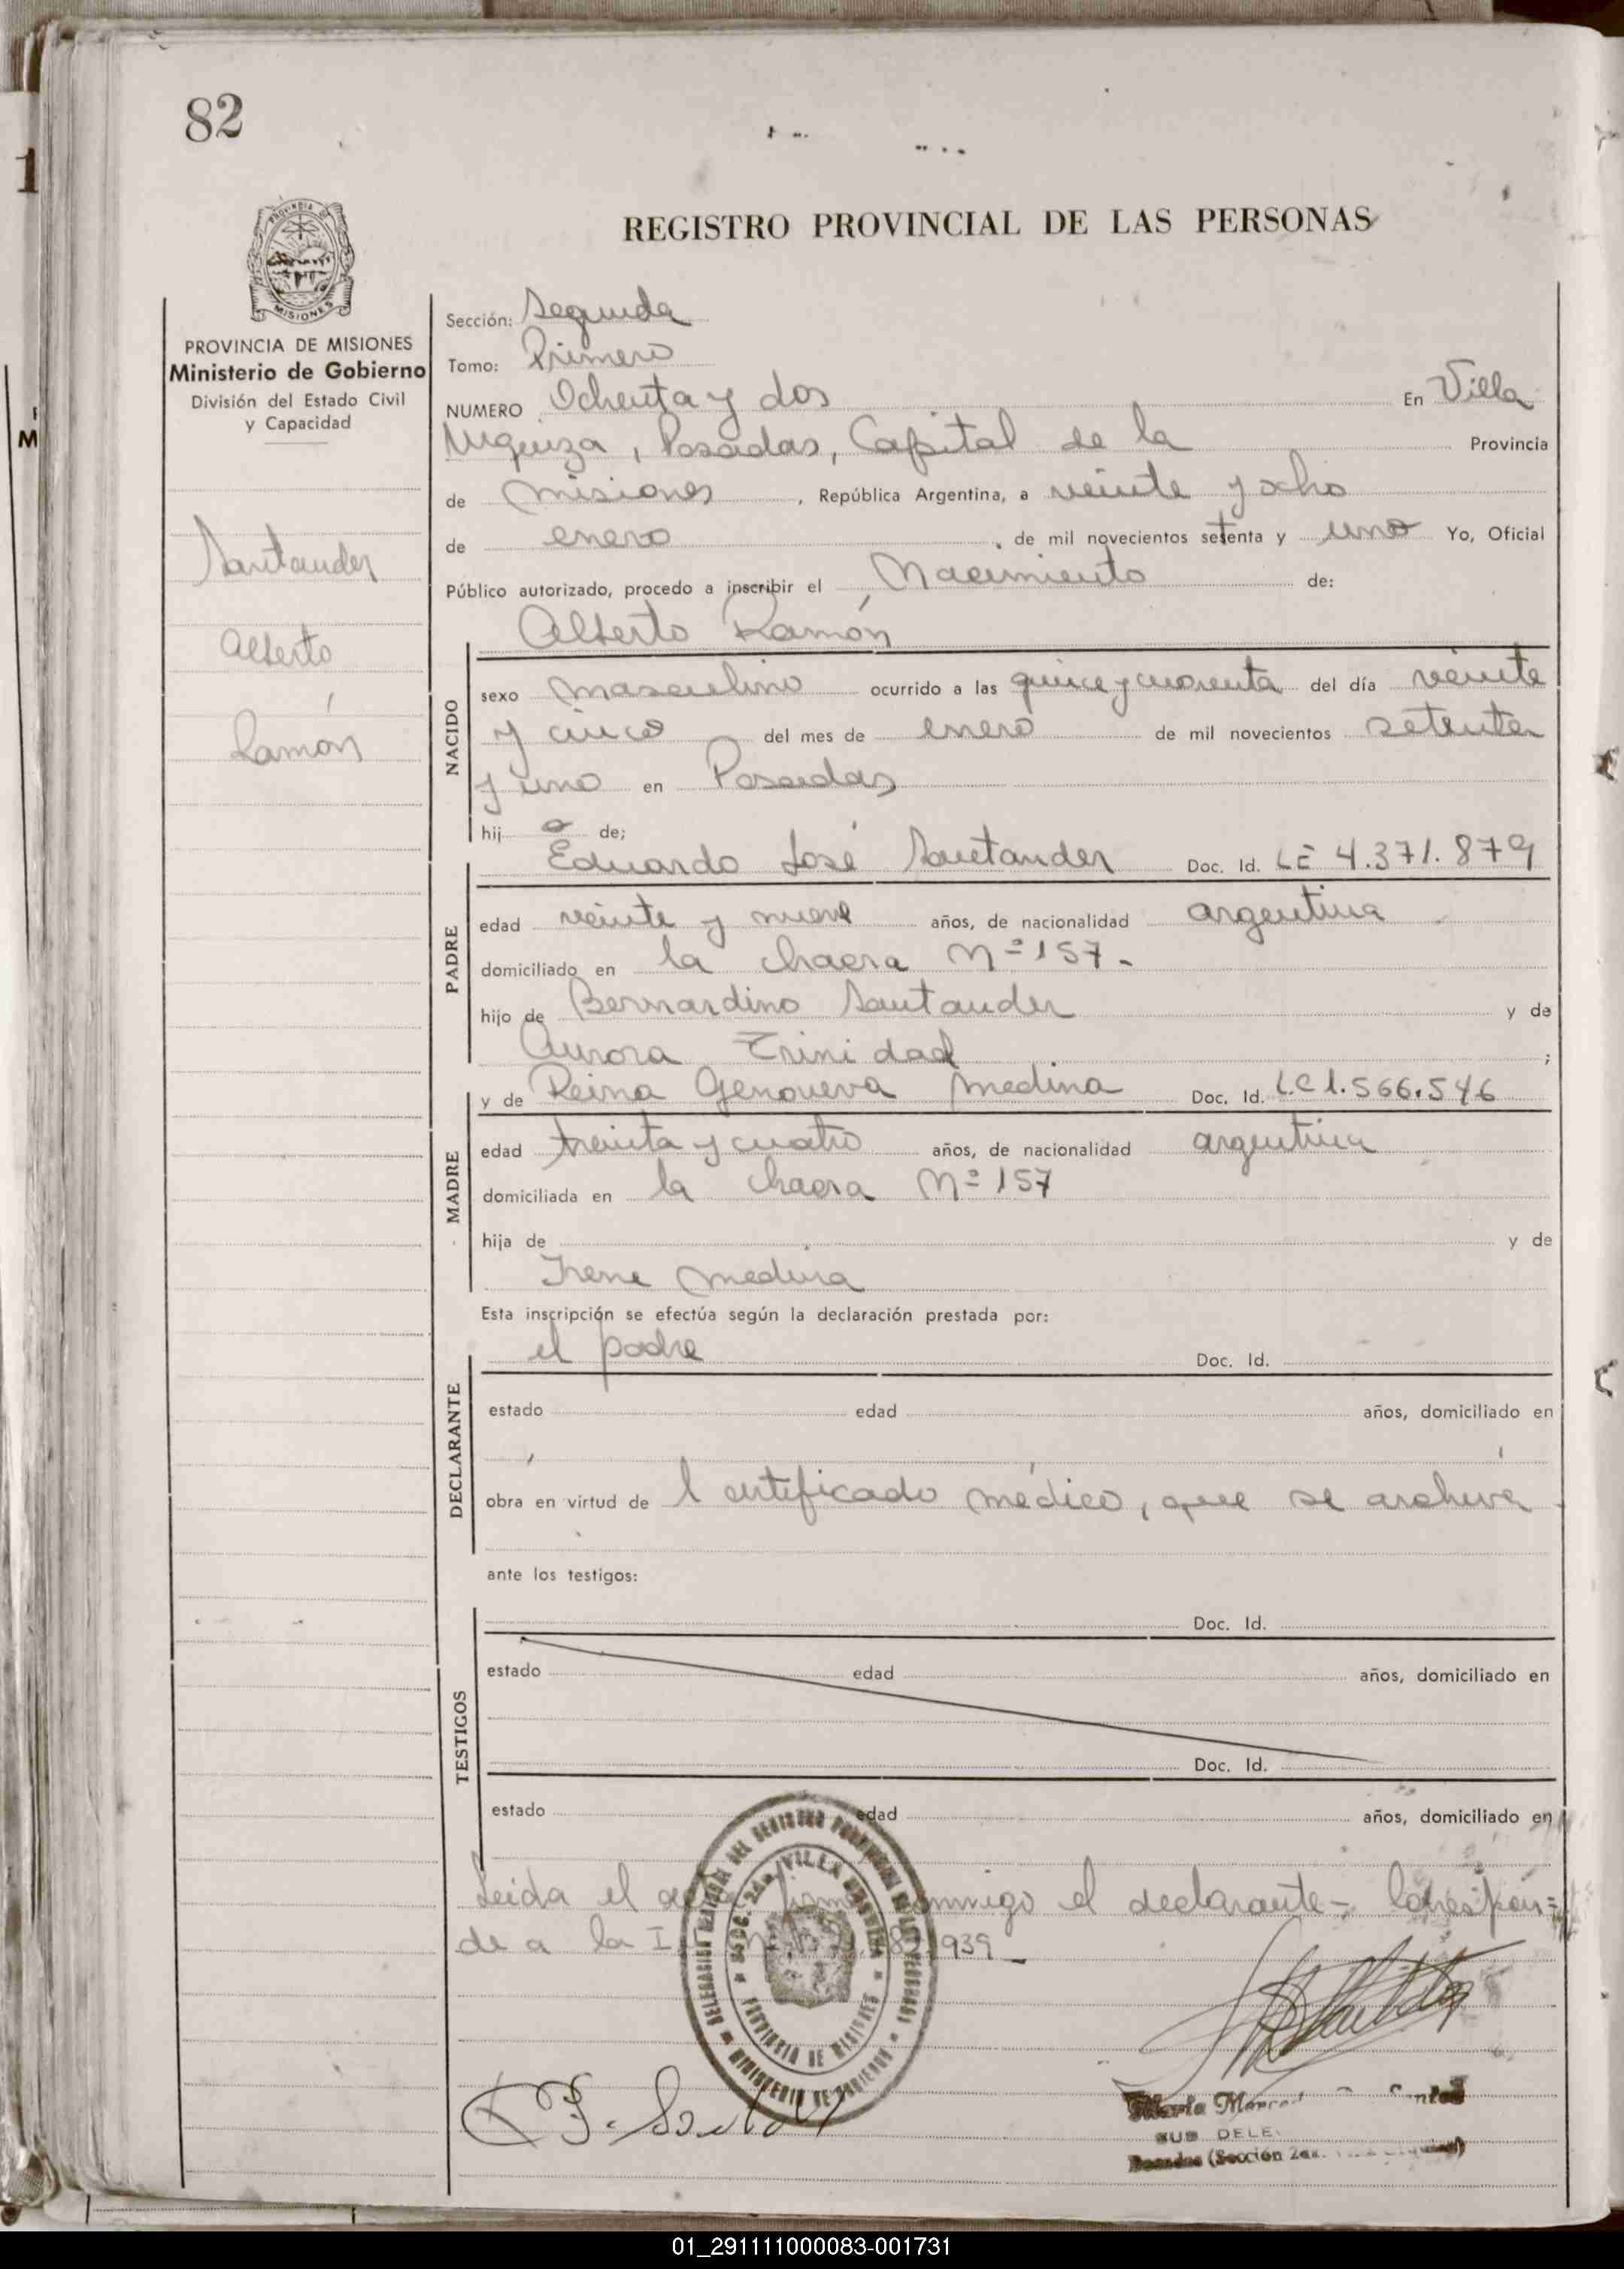 82
REGISTRO PROVINCIAL DE LAS PERSONAS
PROVINCIA DE
MISIONES
PROVINCIA DE MISIONES
Ministerio de Gobierno
División del Estado Civil
y Capacidad
Santander
Alberto
Ramón
Sección: Segunda
Tomo: Primero
NUMERO Ochenta y dos En Villa
Urquiza, Posadas, Capital de la Provincia
de misiones, República Argentina, a veinte y ocho
de enero de mil novecientos setenta y uno Yo, Oficial
Público autorizado, procedo a inscribir el Nacimiento de:
Alberto Ramón
NACIDO
sexo masculino ocurrido a las quince y cuarenta del día veinte
y cinco del mes de enero de mil novecientos setenta
y uno en Posadas
hij o de;
Eduardo José Santander Doc. Id. LE 4.371.879
PADRE
edad veinte y nueve años, de nacionalidad argentina
domiciliado en la chacra Nº 157.-
hijo de Bernardino Santander y de
Aurora Trinidad ;
y de Reina Genoveva Medina Doc. Id. L.C 1.566.546
MADRE
edad treinta y cuatro años, de nacionalidad argentina
domiciliada en la chacra Nº 157
hija de y de
Irene Medina
Esta inscripción se efectúa según la declaración prestada por:
el padre Doc. Id.
DECLARANTE
estado edad años, domiciliado en
obra en virtud de l certificado médico, que se archiva
ante los testigos:
Doc. Id.
TESTIGOS
estado edad años, domiciliado en
Doc. Id.
estado edad años, domiciliado en
Leida el firma conmigo el declarante-, Correspon=
de a la 939-
VILLA URQUIZA
PROVINCIA DE MISIONES
MINISTERIO DE GOBIERNO
Maria
SUB DELE
Posadas (Sección 2da.
01_291111000083-001731